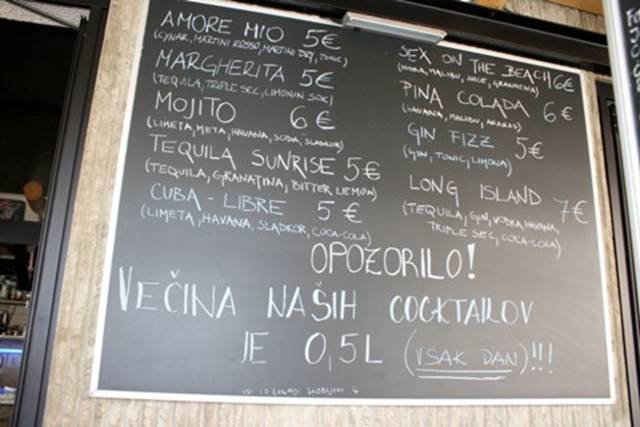 AMORE MIO 5€
(CYNAR, MARTINI ROSSO, MARTINI DRY, TONIC)
MARGHERITA 5€
(TEQUILA, TRIPLE SEC, LIMONIN SOK)
MOJITO 6€
(LIMETA, META, HAVANA, SODA, SLADKOR)
TEQUILA SUNRISE 5€
(TEQUILA, GRANATINA, BITTER LEMON)
CUBA - LIBRE 5€
(LIMETA, HAVANA, SLADKOR, COCA-COLA)
SEX ON THE BEACH 6€
MALIBU, JUICE, GRANATINA)
PINA COLADA 6€
(HAVANA, MALIBU, ANANAS)
GIN FIZZ 5€
(GIN, TONIC, LIMONA)
LONG ISLAND 7€
(TEQUILA, GIN, VODKA, HAVANA,
TRIPLE SEC, COCA-COLA)
OPOZORILO!
VEČINA NAŠIH COCKTAILOV
JE 0,5L (VSAK DAN)!!!